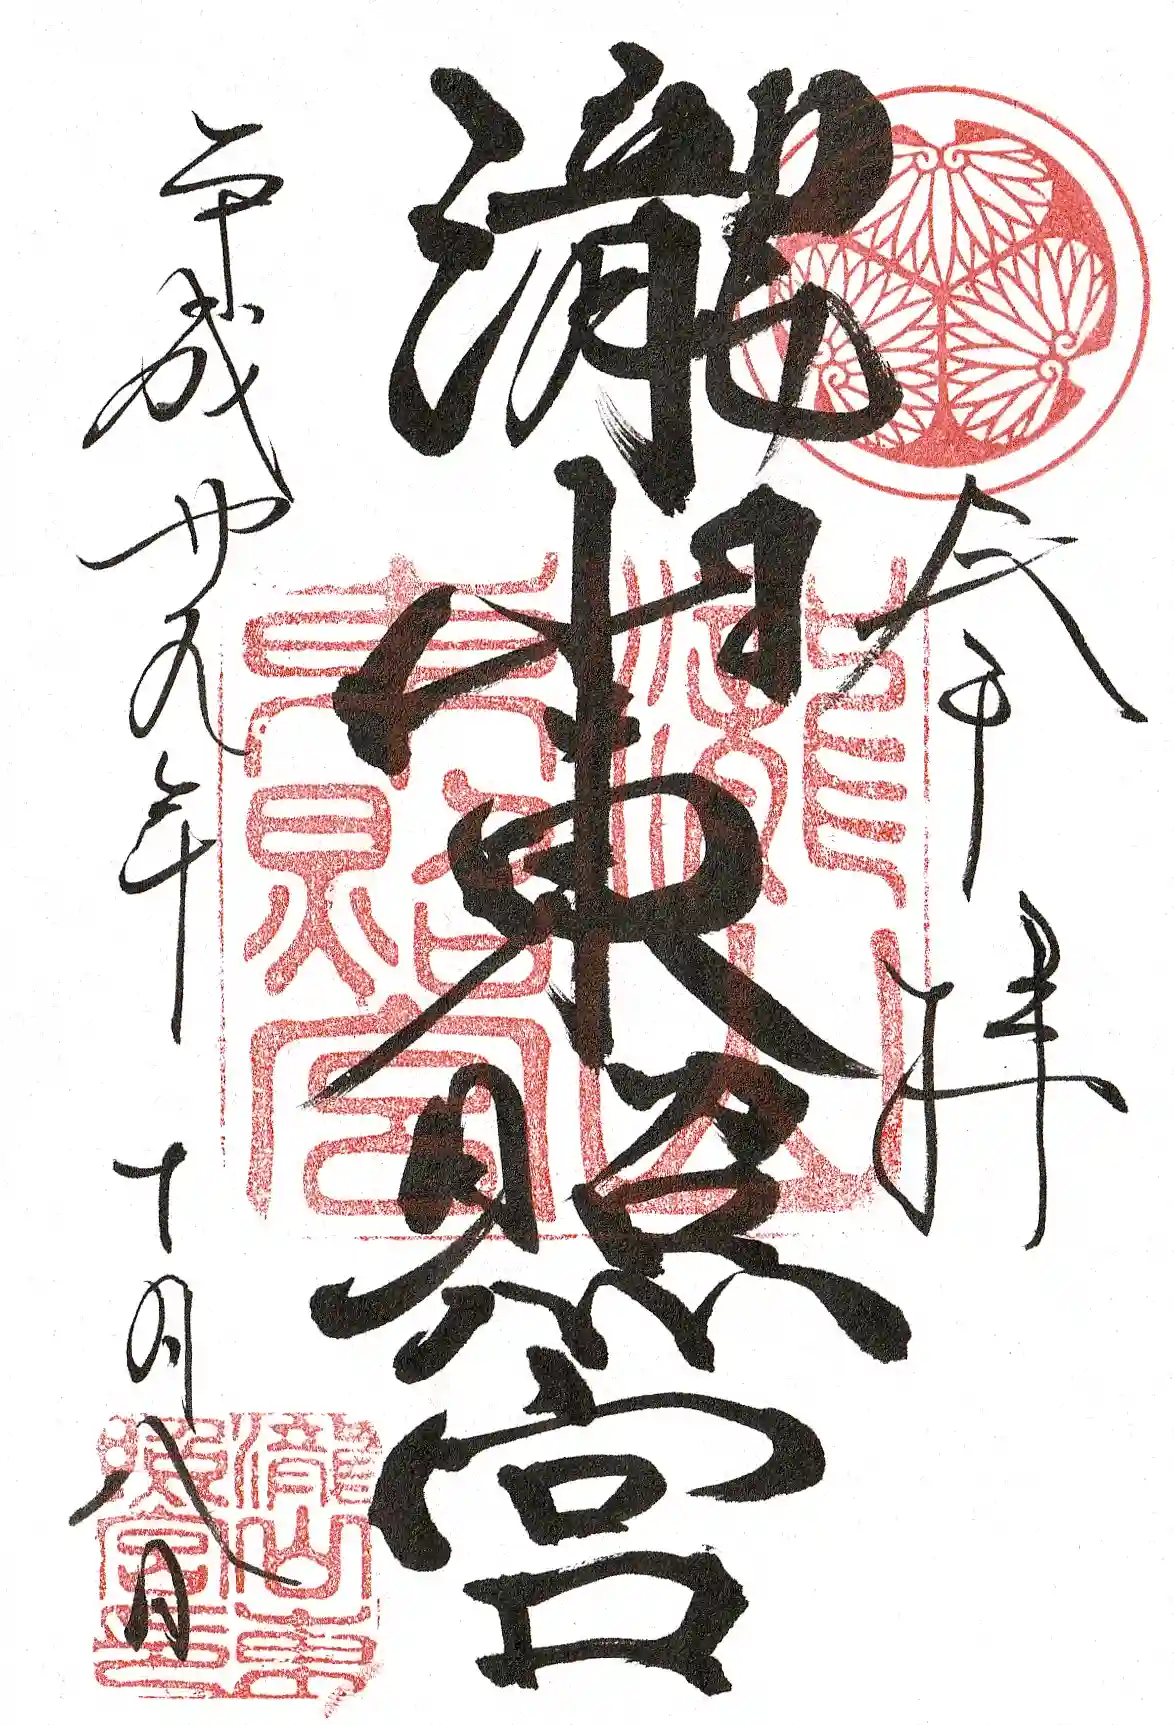 奉拝
瀧山東照宮
平成廿九年十月八日
瀧山
東照宮
瀧山東
照宮印